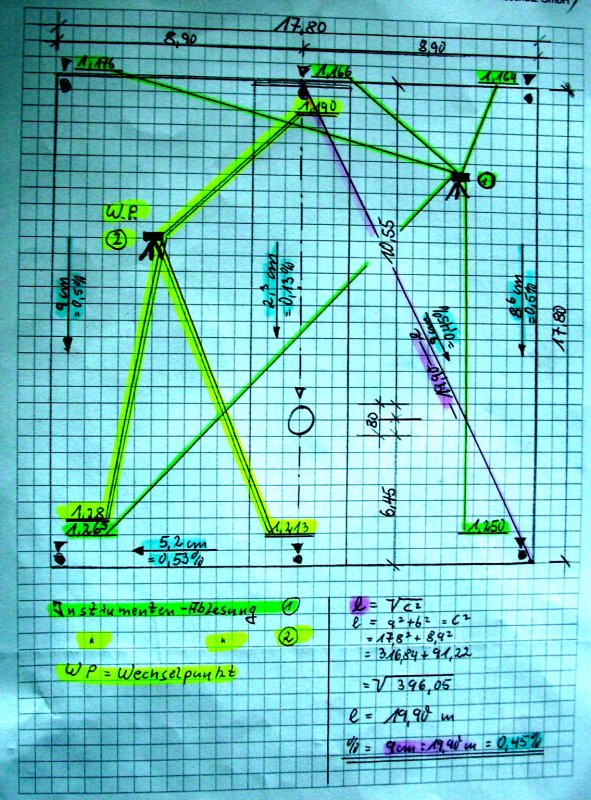 17,80
8,90
8,90
1,176
1,166
1,164
1,190
①
W.P.
②
10,55
9 cm
=0,5%
2,3 cm
=0,13%
8⁶ cm
=0,5%
17,80
9 cm
=0,45%
19,90
l
,80
6,45
1,28
1,265
1,213
1,250
5,2 cm
=0,53%
Instrumenten-Ablesung ①
" " ②
WP = Wechselpunkt
l = √c²
l = a²+b² = c²
= 17,8² + 8,9²
= 316,84 + 91,22
= √396,05
l = 19,90 m
% = 9cm : 19,90 m = 0,45%